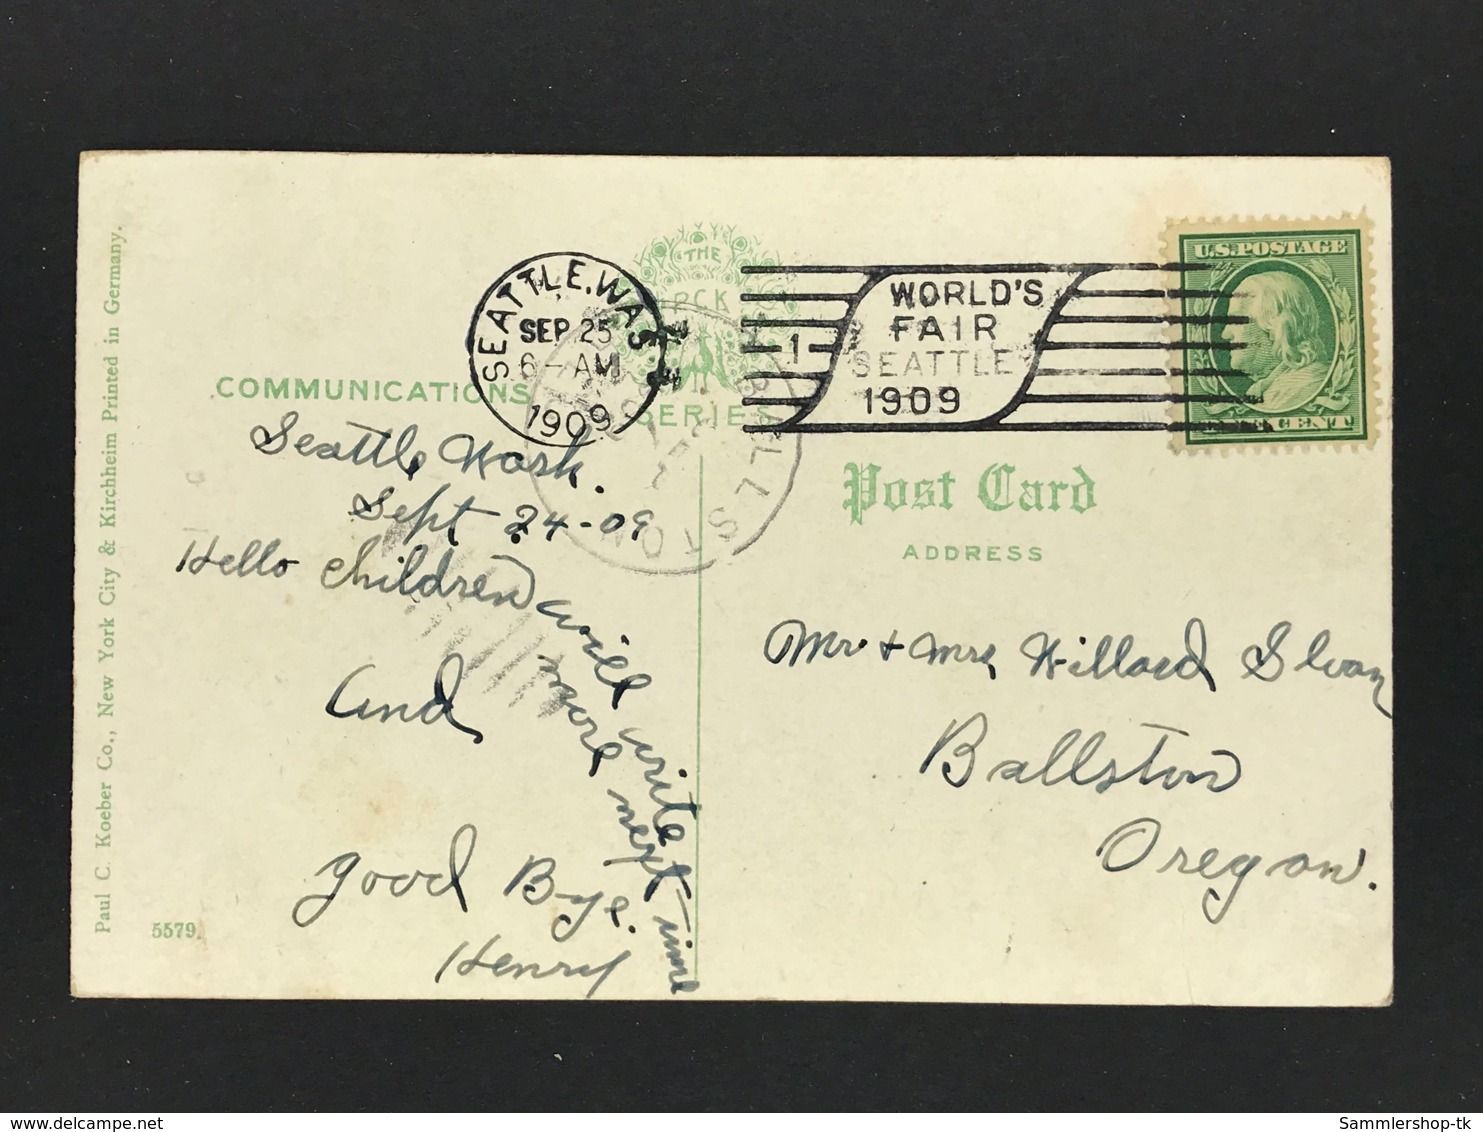 Paul C. Koeber Co., New York City & Kirchheim Printed in Germany.
5579.
THE
PCK
SERIES
COMMUNICATIONS
SEATTLE, WASH
SEP 25
6-AM
1909
1
WORLD'S
FAIR
SEATTLE
1909
U.S. POSTAGE
CENT
BALLSTON
Post Card
ADDRESS
Seattle Wash.
Sept 24-09
Hello Children
will write
more next time
And
Good Bye.
Henry
Mr. + Mrs Willard Sloan
Ballston
Oregon.
Sammlershop-tk